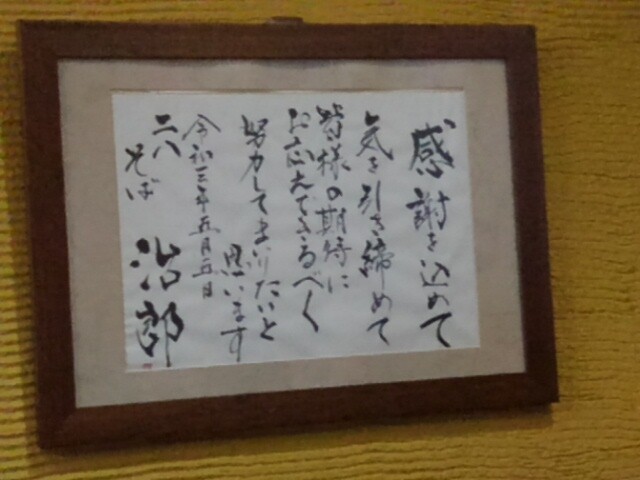 感謝を込めて
気を引き締めて
皆様の期待に
お応えできるべく
努力してまいりたいと
思います
令和三年五月五日
二八
そば
治郎